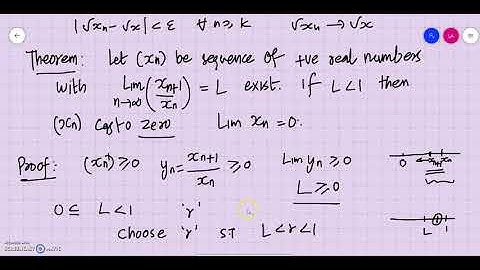 |√xn - √x| < ε ∀ n ≥ K √xn → √x
Theorem: Let (xn) be sequence of +ve real numbers
with Lim n→∞ (xn+1/xn) = L exist. If L<1 then
(xn) cgs to zero Lim xn = 0.
Proof: (xn) ≥ 0 yn = xn+1/xn ≥ 0 Lim yn ≥ 0
L ≥ 0
0 xn+1 xn
0 ≤ L < 1 'r'
choose 'r' st L < r < 1
L 1